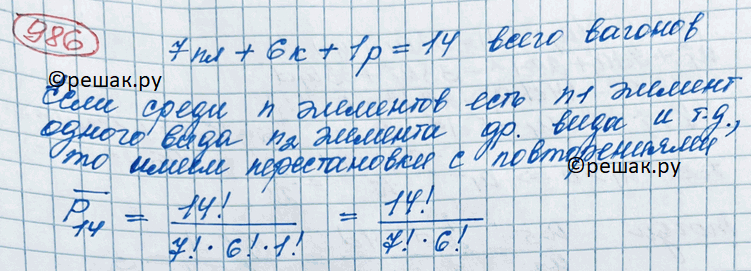 986
7пл + 6к + 1р = 14 всего вагонов
©решак.ру
Если среди n элементов есть n1 элемент
одного вида n2 элемента др. вида и т.д.,
то имеем перестановки с повторениями
©решак.ру
P̅14 = 14! / (7! · 6! · 1!) = 14! / (7! · 6!)